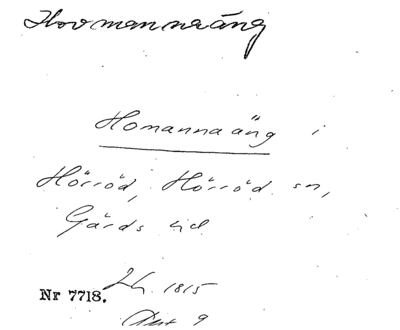 Hovmannaäng
Homannaäng i
Hörröd, Hörröd sn,
Gärds hd
Nr 7718. 1815
9